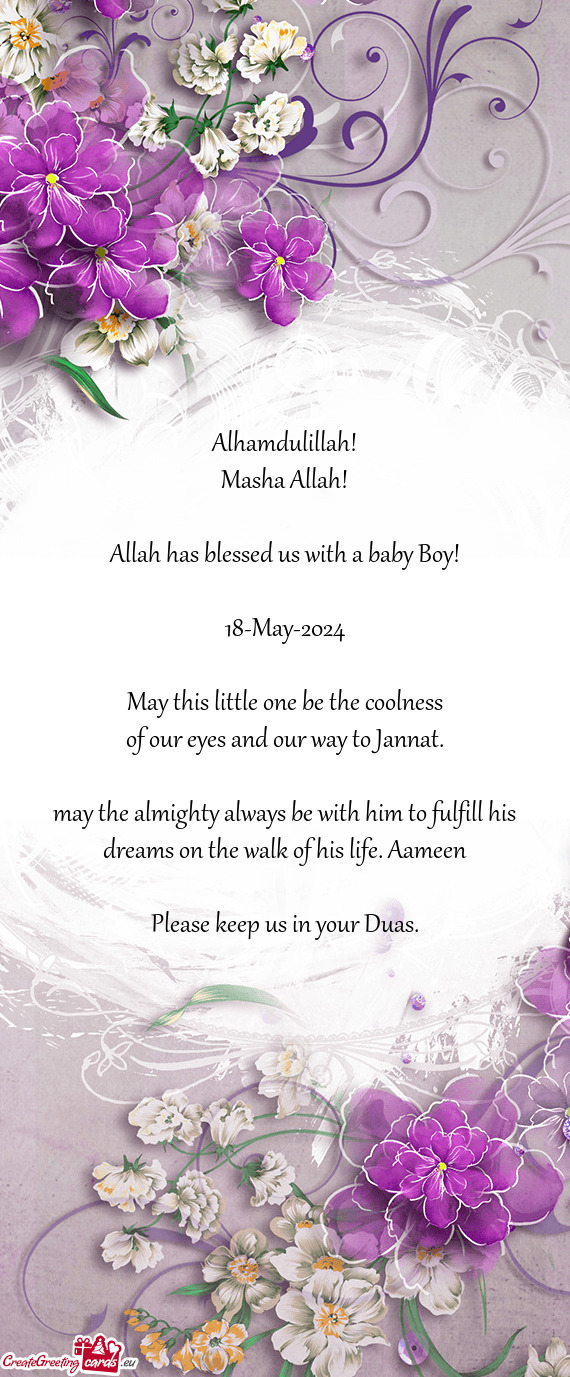 Alhamdulillah!
Masha Allah!
Allah has blessed us with a baby Boy!
18-May-2024
May this little one be the coolness
of our eyes and our way to Jannat.
may the almighty always be with him to fulfill his
dreams on the walk of his life. Aameen
Please keep us in your Duas.
CreateGreeting cards .eu